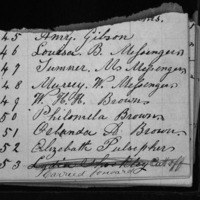 45 Amy Gilson
46 Louisa B. Messenger
47 Sumner Ms Messenger
48 Murray W. Messenger
49 W. H. H. Brown
50 Philomela Brown
51 Orlanda D. Brown
52 Elizabeth Pulsipher
53 Lydia Cut off